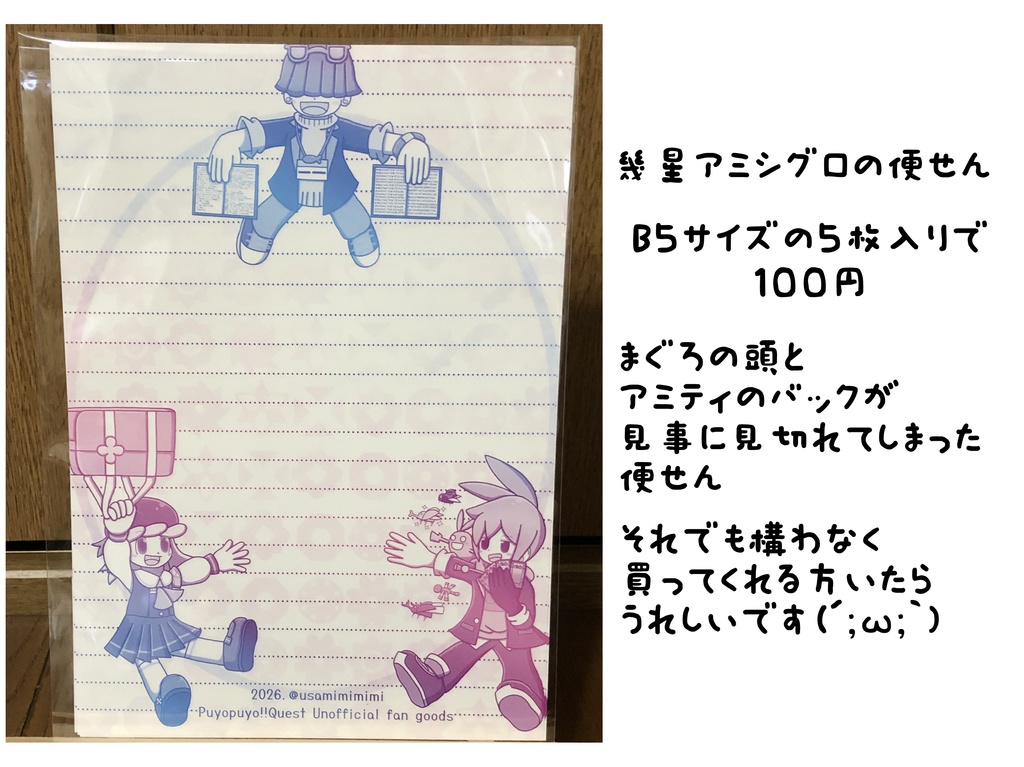 幾星アミシグロの便せん
B5サイズの5枚入りで
100円
まぐろの頭と
アミティのバックが
見事に見切れてしまった
便せん
それでも構わなく
買ってくれる方いたら
うれしいです(´;ω;`)
2026. @usamimimimi
Puyopuyo!!Quest Unofficial fan goods